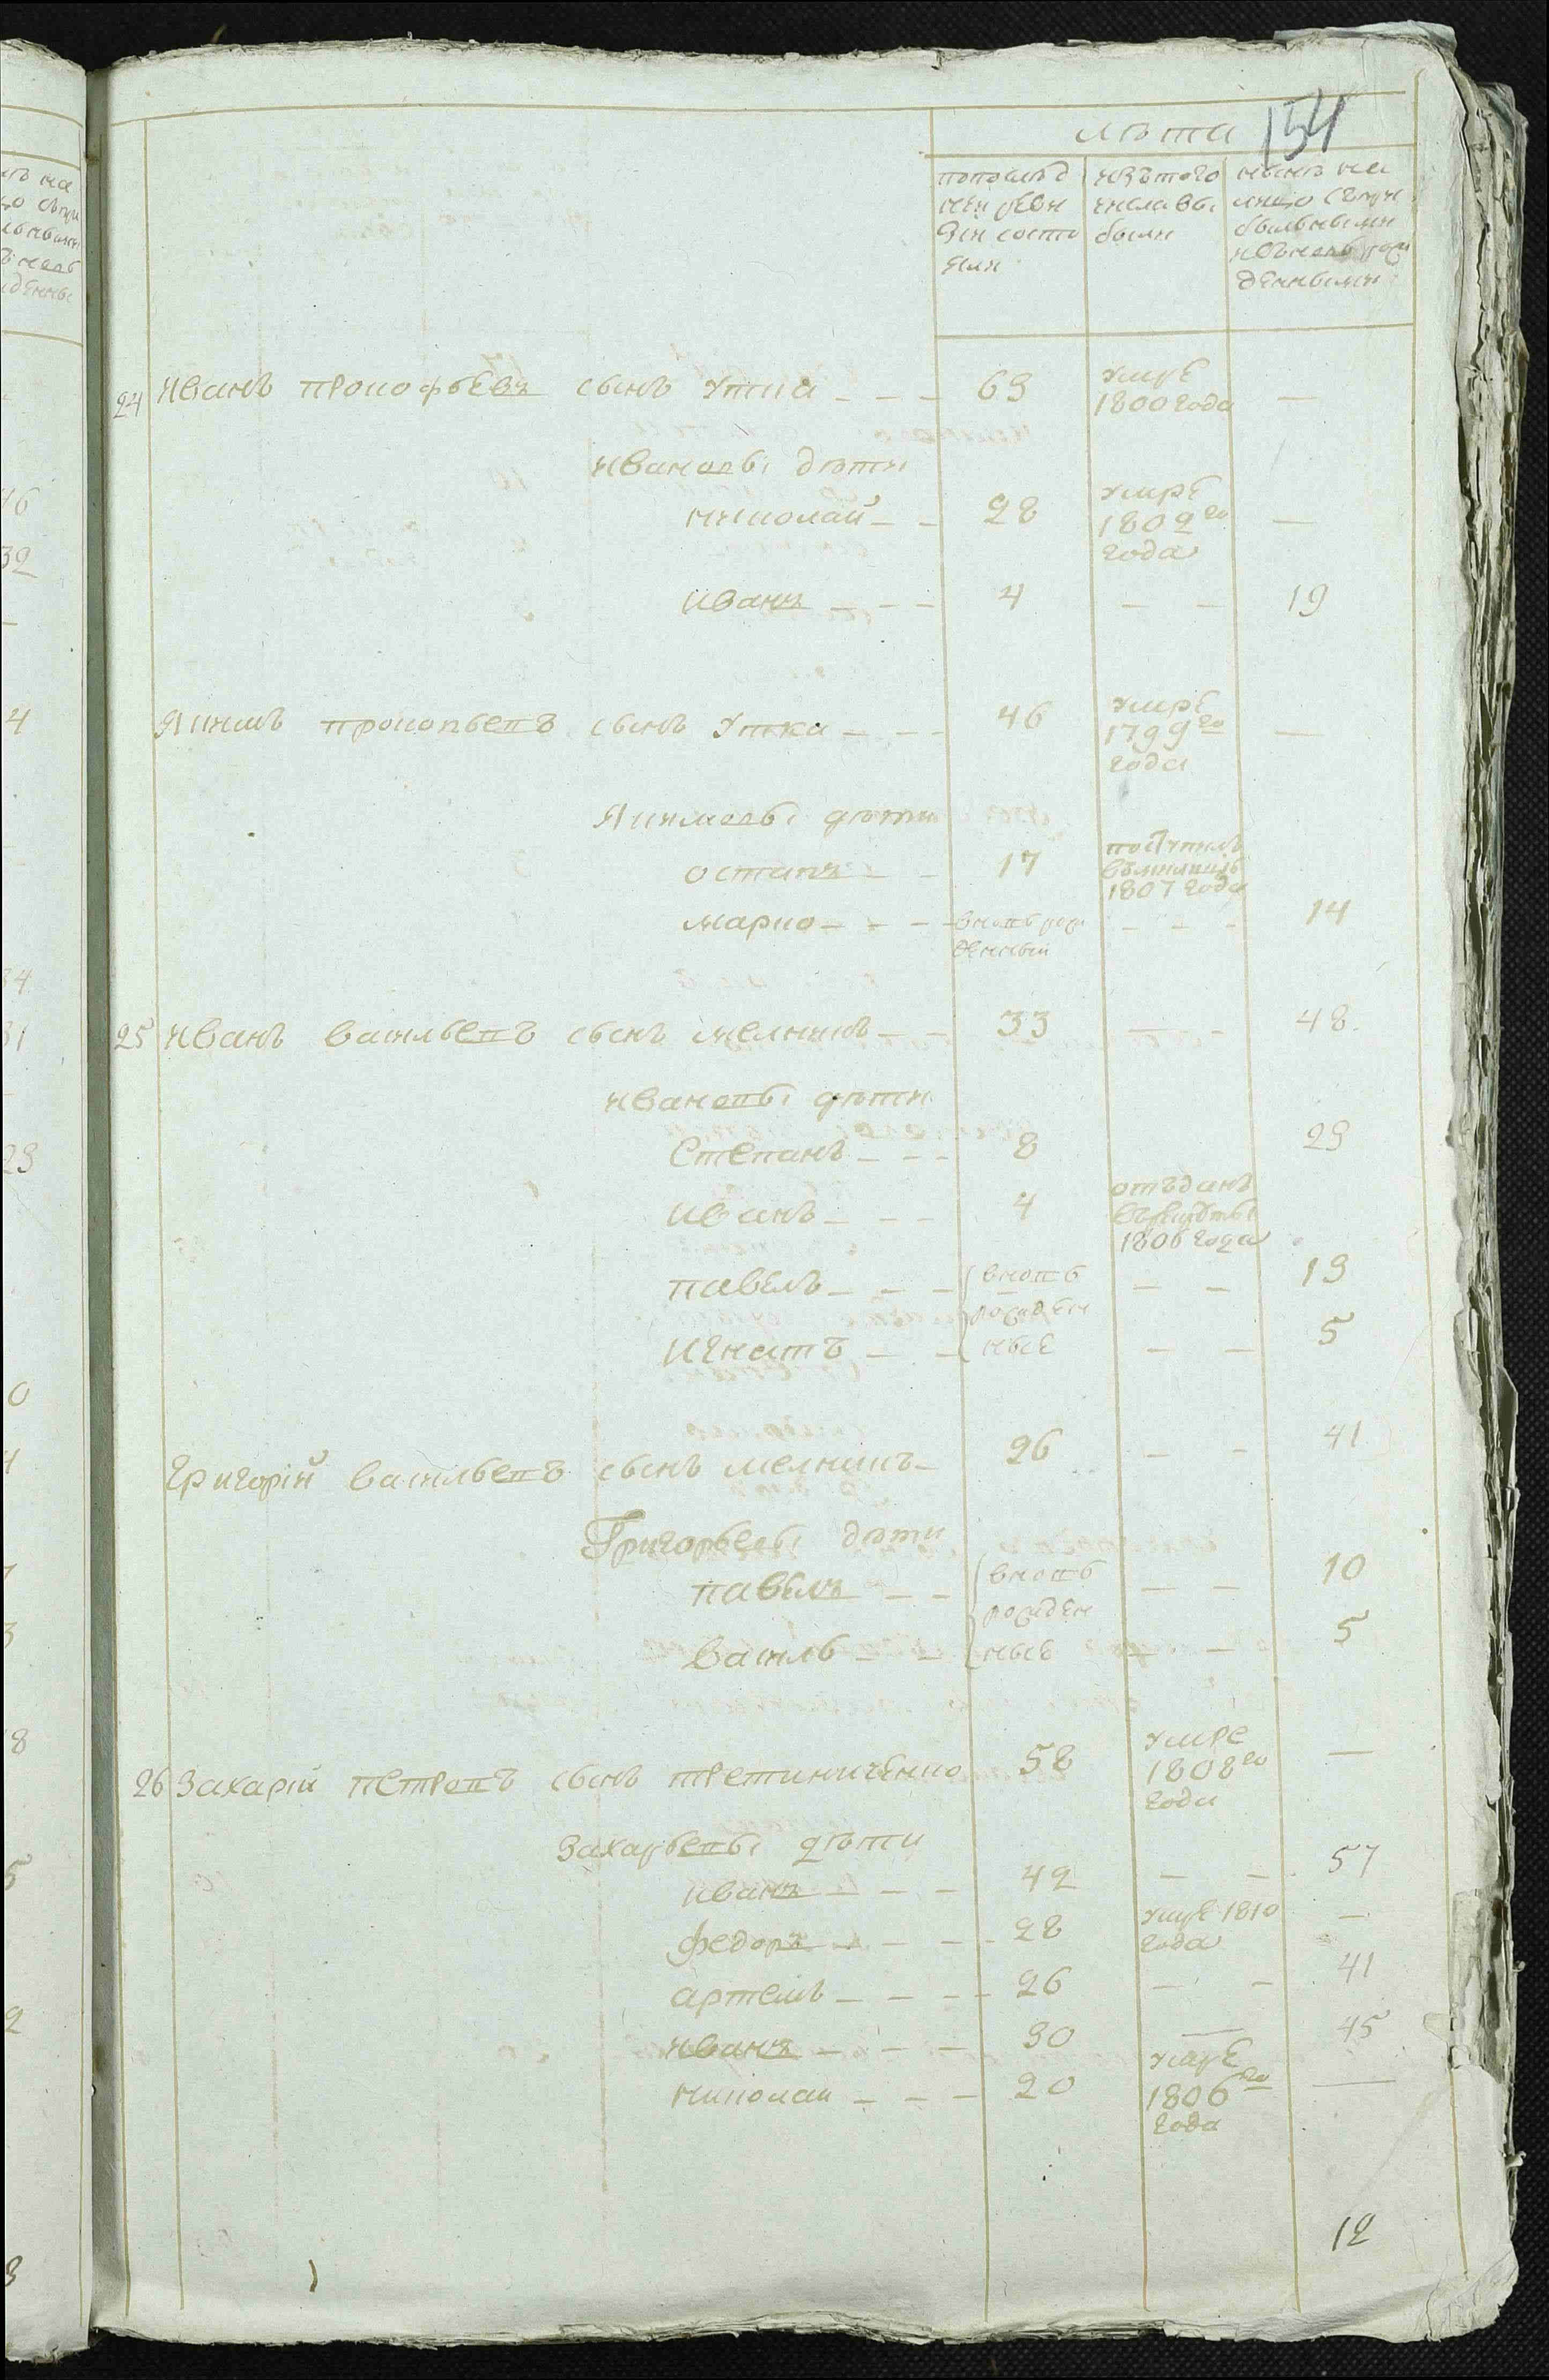 154
лѣта
попослѣд
ней реви
зіи состо
яли
изътого
числа вы
были
нынѣ на
лицо съпри
былыми
ивновь рож
денными
24 Иванъ прокофьевъ сынъ Утка — — — 63 умре 1800 года —
Ивановы дѣти
николай — — 28 умре 1802го года —
иванъ — — — 4 — — 19
Якимъ прокопьевъ сынъ Утка — — — 46 умре 1799го года —
Якимовы дѣти
остапъ — — 17 поступилъ вмилицію 1807 года
марко — — — вновь рож денный — — — 14
25 Иванъ васильевъ сынъ мелникъ — — 33 — — 48
Ивановы дѣти
Степанъ — — — 8 23
иванъ — — — 4 отъданъ врекруты 1806 года
павелъ — — — вновь — — 13
рожден
игнатъ — — ные — — 5
Григорій васильевъ сынъ мелникъ — 26 — — 41
Григорьевы дѣти
павелъ — — вновь — — 10
рожден
василь — — ные — — 5
26 Захарій петровъ сынъ третиниченко 58 умре 1808го года —
Захарьевы дѣти
иванъ — — — 42 — — 57
федоръ — — — 28 умре 1810 года —
артемъ — — — 26 — — 41
иванъ — — — 30 — 45
николаи — — — 20 умре 1806го года —
12